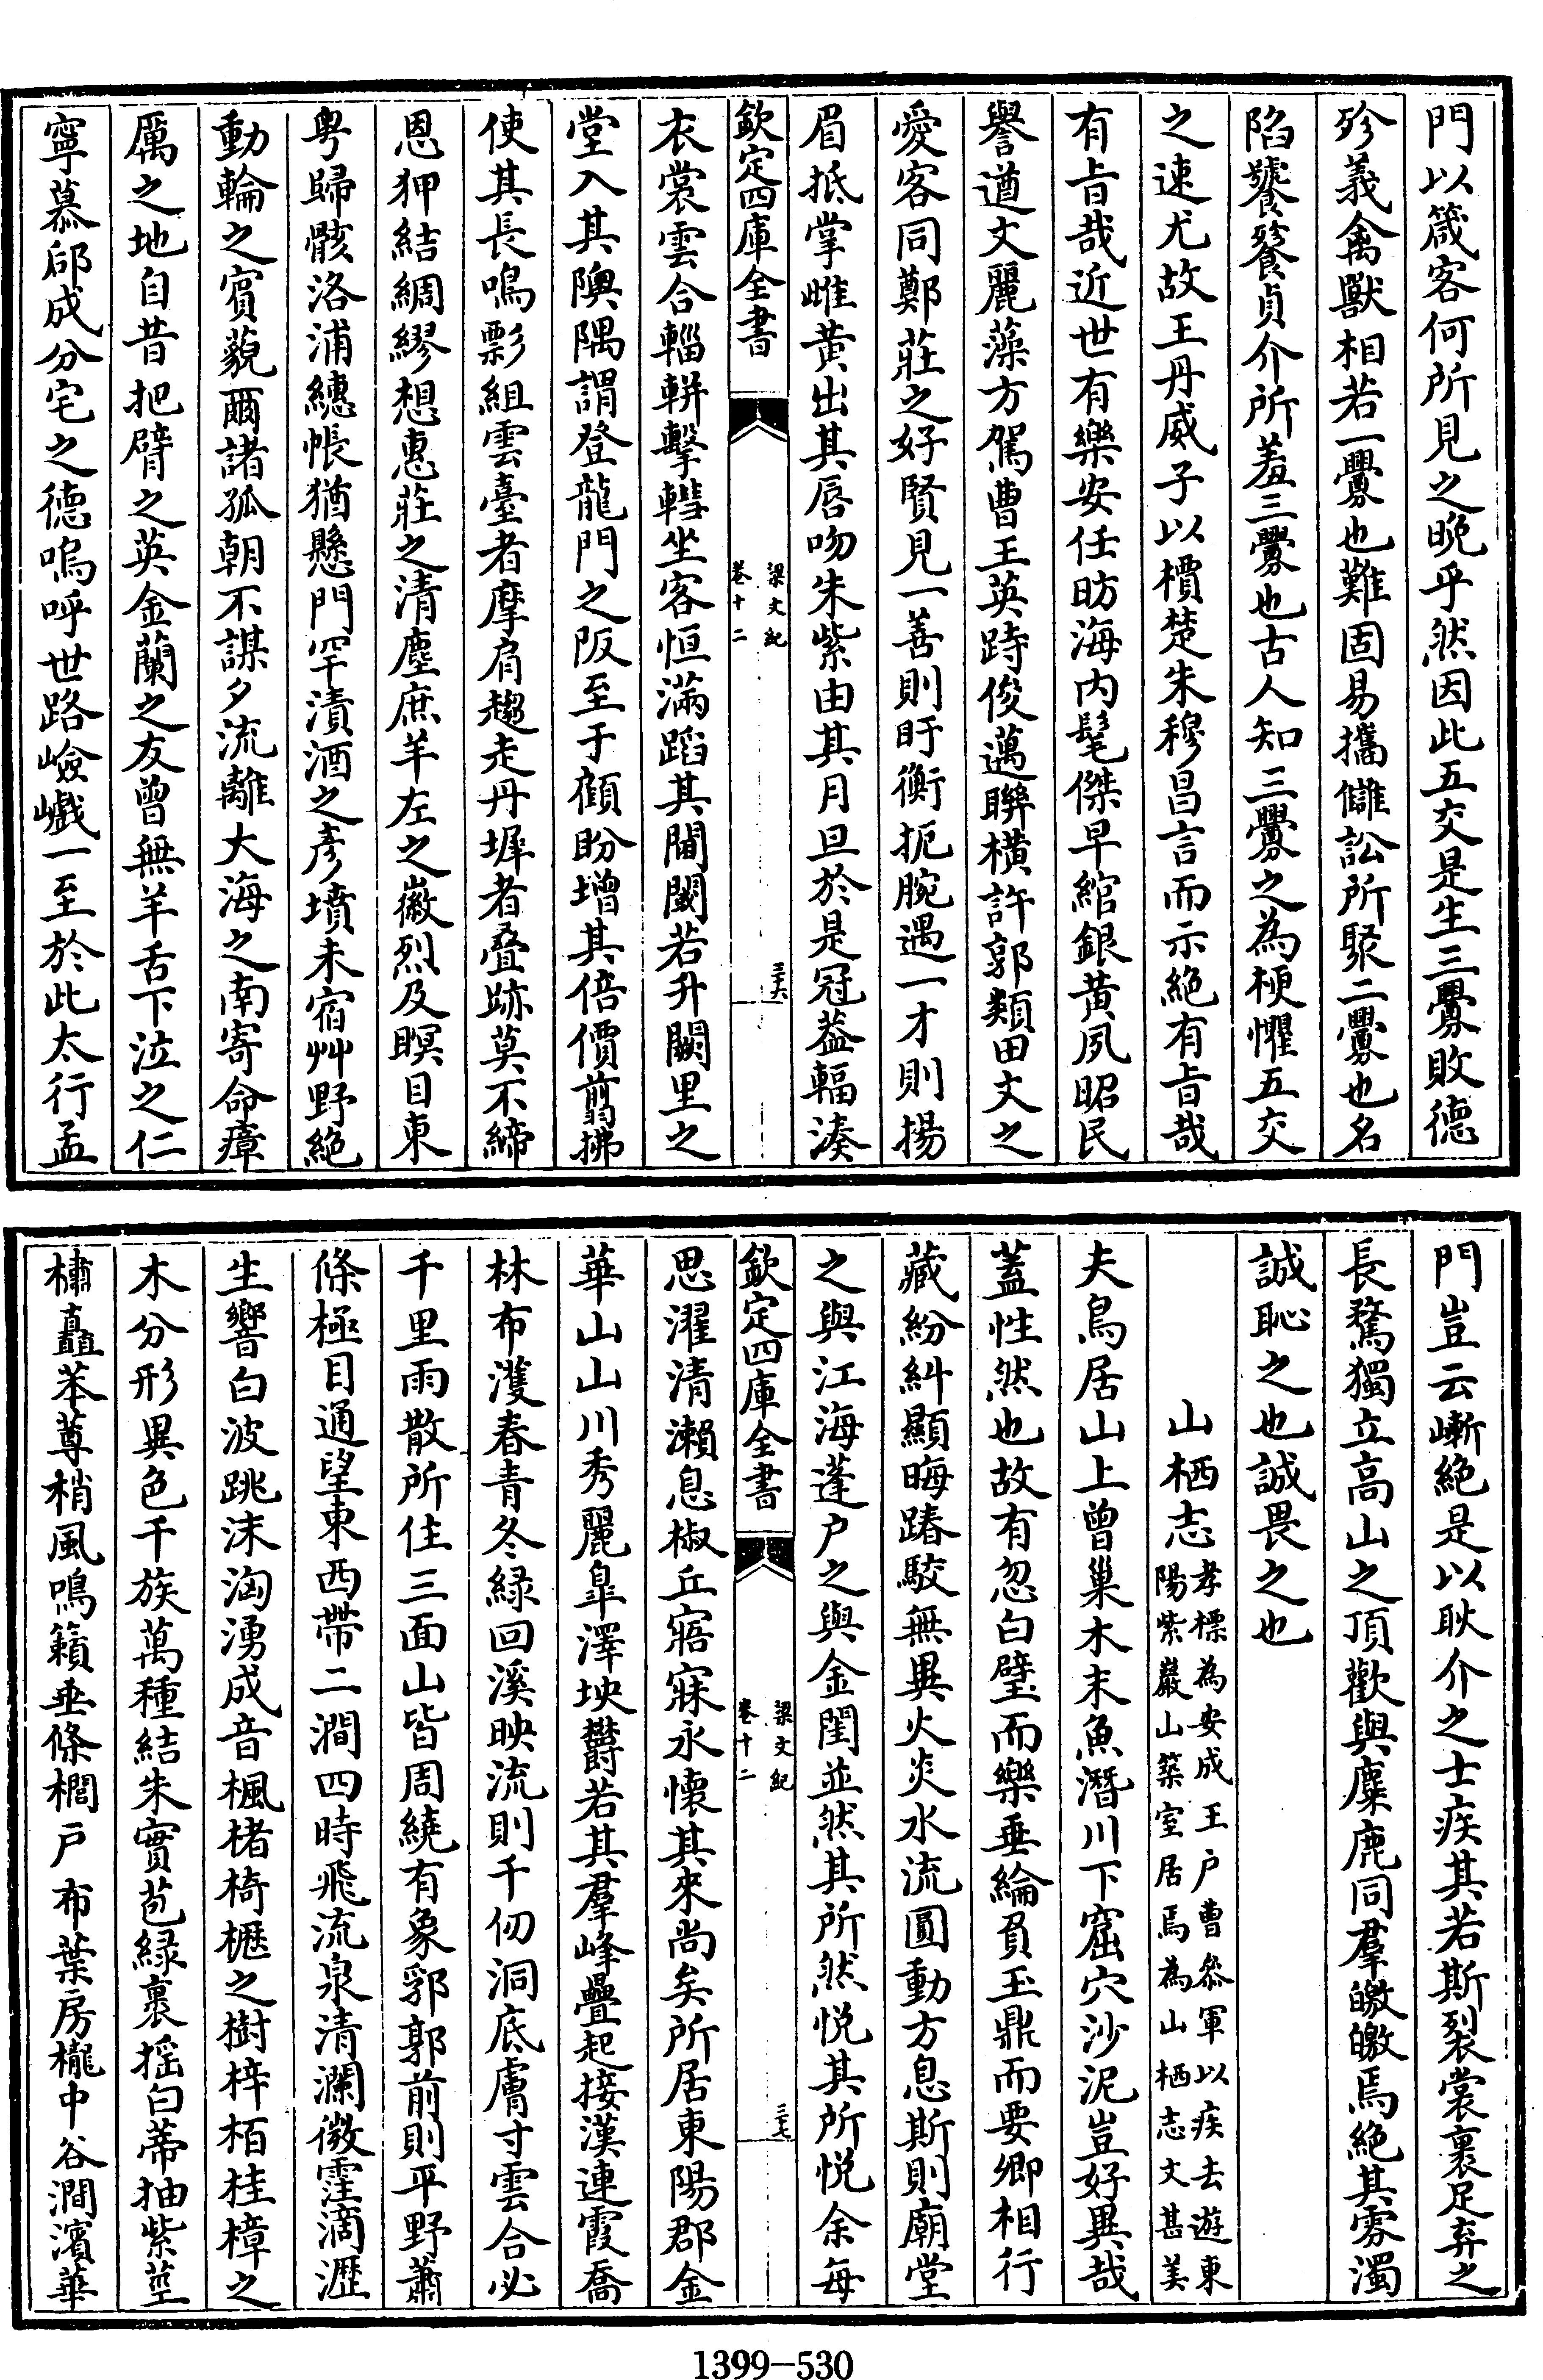 門以箴客何所見之晚乎然因此五交是生三釁敗德
殄義禽獸相若一釁也難固易攜讎訟所聚二釁也名
陷饕餮貞介所羞三釁也古人知三釁之為梗懼五交
之速尤故王丹威子以檟楚朱穆昌言而示絶有旨哉
有旨哉近世有樂安任昉海内髦傑早綰銀黄夙昭民
譽遒文麗藻方駕曹王英跱俊邁聯横許郭類田文之
愛客同鄭莊之好賢見一善則盱衡扼腕遇一才則揚
眉抵掌雌黄出其唇吻朱紫由其月旦於是冠葢輻湊
欽定四庫全書
梁文紀
卷十二
三十六
衣裳雲合輜軿擊轊坐客恒滿蹈其閫閾若升闕里之
堂入其隩隅謂登龍門之阪至于顧盼增其倍價翦拂
使其長鳴影組雲臺者摩肩趨走丹墀者疊跡莫不締
恩狎結綢繆想惠莊之清塵庶羊左之徽烈及瞑目東
粤歸骸洛浦繐帳猶懸門罕漬酒之彦墳未宿艸野絶
動輪之賓藐爾諸孤朝不謀夕流離大海之南寄命瘴
厲之地自昔把臂之英金蘭之友曾無羊舌下泣之仁
寧慕郈成分宅之德嗚呼世路嶮巇一至於此太行孟
門豈云嶄絶是以耿介之士疾其若斯裂裳裹足弃之
長騖獨立高山之頂歡與麋鹿同羣皦皦焉絶其雰濁
誠恥之也誠畏之也
山栖志孝標為安成王户曹叅軍以疾去遊東
陽紫巖山築室居焉為山栖志文甚美
夫鳥居山上曾巢木末魚潛川下窟穴沙泥豈好異哉
蓋性然也故有忽白璧而樂垂綸負玉鼎而要卿相行
藏紛糾顯晦踳駮無異火炎水流圓動方息斯則廟堂
之與江海蓬户之與金閨並然其所然悦其所悦余每
欽定四庫全書
梁文紀
卷十二
三十七
思濯清瀨息椒丘寤寐永懷其來尚矣所居東陽郡金
華山山川秀麗臯澤坱鬱若其羣峰疊起接漢連霞喬
林布濩春青冬緑回溪映流則千仞洞底膚寸雲合必
千里雨散所住三面山皆周繞有象郛郭前則平野蕭
條極目通望東西帶二澗四時飛流泉清瀾微霔滴瀝
生響白波跳沫洶湧成音楓楮椅櫪之樹梓栢桂樟之
木分形異色千族萬種結朱實苞緑裹揺白蔕抽紫莖
橚矗苯䔿梢風鳴籟垂條櫚户布葉房櫳中谷澗濱華
1399-530